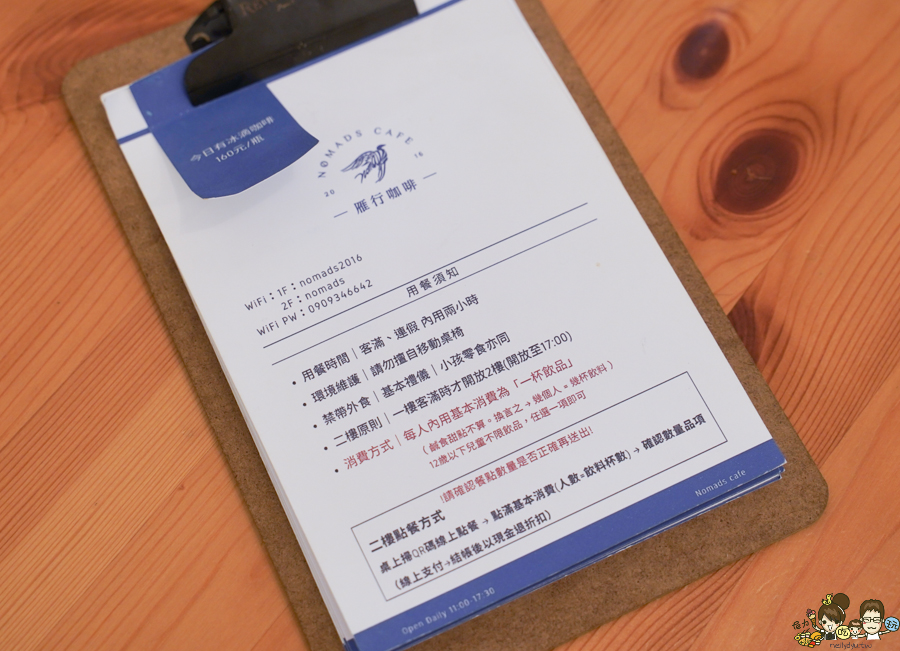 今日有冰滴咖啡
160元/瓶
NØMADS CAFE
20 16
雁行咖啡
WiFi：1F：nomads2016
2F：nomads
WiFi PW：0909346642
用餐須知
• 用餐時間｜客滿、連假 內用兩小時
• 環境維護｜請勿擅自移動桌椅
• 禁帶外食｜基本禮儀｜小孩零食亦同
• 二樓原則｜一樓客滿時才開放2樓(開放至17:00)
• 消費方式｜每人內用基本消費為「一杯飲品」
（鹹食甜點不算。換言之→幾個人。幾杯飲料）
12歲以下兒童不限飲品，任選一項即可
!請確認餐點數量是否正確再送出!
二樓點餐方式
桌上掃QR碼線上點餐 → 點滿基本消費(人數=飲料杯數) → 確認數量品項
（線上支付→結帳後以現金退折扣）
Open Daily 11:00-17:30
Nomads cafe